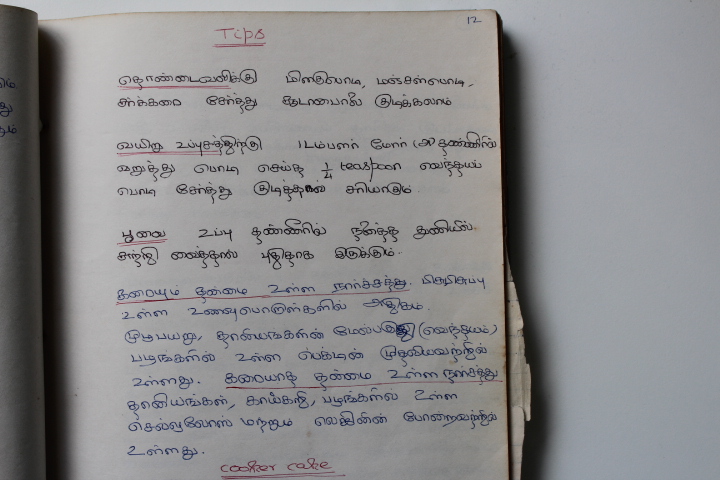 12
Tips
தொண்டைவலிக்கு மிளகுபொடி, மஞ்சள்பொடி,
சர்க்கரை சேர்த்து சூடாபால் குடிக்கலாம்
வயிறு உப்புசத்திற்கு 1 டம்பளர் மோர் (அ) தண்ணீரில்
வறுத்து பொடி செய்த 1/4 teaspoon வெந்தயப்
பொடி சேர்த்து குடித்தால் சரியாகும்.
பூவை உப்பு தண்ணீரில் நனைத்த துணியில்
சுற்றி வைத்தால் புதிதாக இருக்கும்.
கரையும் தன்மை உள்ள நார்ச்சத்து. பிசுபிசுப்பு
உள்ள உணவுபொருள்களில் அதிகம்.
முழுபயறு, தானியங்களின் மேல்பகுதி (வெந்தயம்)
பழங்களில் உள்ள பெக்டின் முதலியவற்றில்
உள்ளது. கரையாத தன்மை உள்ள நார்சத்து
தானியங்கள், காய்கறி, பழங்களில் உள்ள
செல்லுலோஸ் மற்றும் லெக்னின் போன்றவற்றில்
உள்ளது.
cooker cake